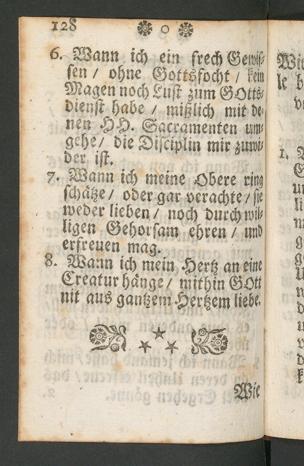 128
6. Wann ich ein frech Gewis-
sen / ohne Gottsfocht / kein
Magen noch Lust zum GOtts-
dienst habe / mißlich mit de-
nen HH. Sacramenten um-
gehe / die Disciplin mir zuwi-
der ist.
7. Wann ich meine Obere ring
schätze / oder gar verachte / sie
weder lieben / noch durch wil-
ligen Gehorsam ehren / und
erfreuen mag.
8. Wann ich mein Hertz an eine
Creatur hänge / mithin GOtt
nit aus gantzem Hertzem liebe.
Wie